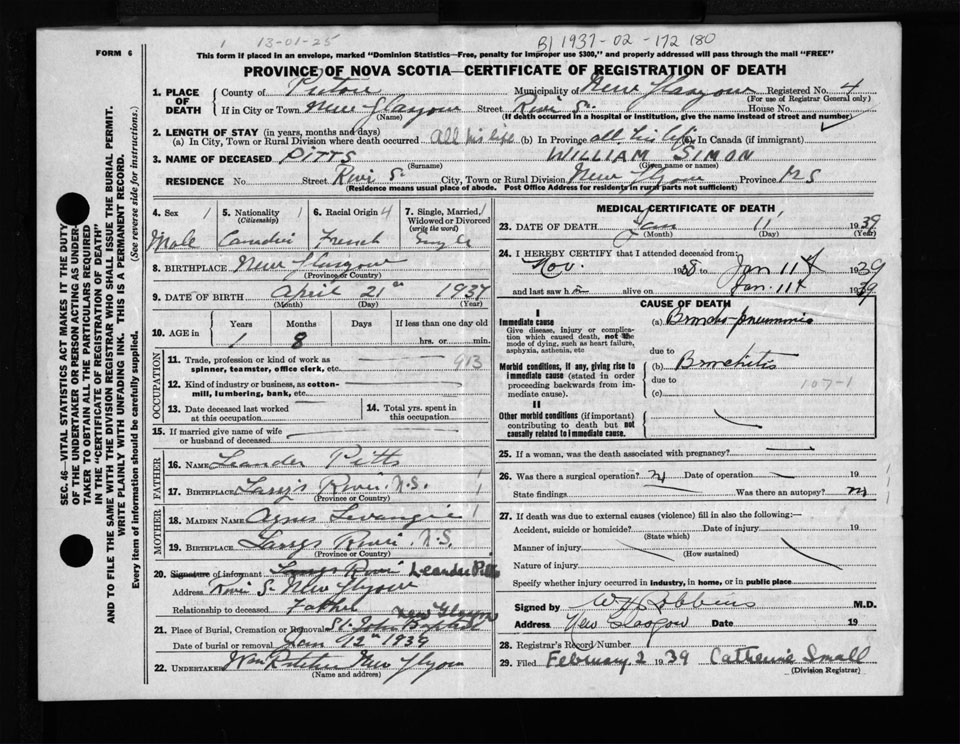 1 13-01-25
BJ 1937-02-172 180
FORM 6
This form if placed in an envelope, marked "Dominion Statistics—Free, penalty for improper use $300," and properly addressed will pass through the mail "FREE"
PROVINCE OF NOVA SCOTIA—CERTIFICATE OF REGISTRATION OF DEATH
SEC. 46—VITAL STATISTICS ACT MAKES IT THE DUTY
OF THE UNDERTAKER OR PERSON ACTING AS UNDER-
TAKER TO OBTAIN ALL THE PARTICULARS REQUIRED
IN THE "CERTIFICATE OF REGISTRATION OF DEATH"
AND TO FILE THE SAME WITH THE DIVISION REGISTRAR WHO SHALL ISSUE THE BURIAL PERMIT.
WRITE PLAINLY WITH UNFADING INK. THIS IS A PERMANENT RECORD.
Every item of information should be carefully supplied. (See reverse side for instructions.)
1. PLACE OF DEATH County of Pictou Municipality of New Glasgow Registered No. 4
(For use of Registrar General only)
If in City or Town New Glasgow Street River S. House No.
(Name) (If death occurred in a hospital or institution, give the name instead of street and number)
2. LENGTH OF STAY (in years, months and days)
(a) In City, Town or Rural Division where death occurred All his life (b) In Province all his life (c) In Canada (if immigrant)
3. NAME OF DECEASED PITTS WILLIAM SIMON
(Surname) (Given name or names)
RESIDENCE No. Street River S. City, Town or Rural Division New Glasgow Province NS
(Residence means usual place of abode. Post Office Address for residents in rural parts not sufficient)
4. Sex 1 Male
5. Nationality 1 (Citizenship)
6. Racial Origin 4 French
7. Single, Married, 1 Widowed or Divorced (write the word) Single
8. BIRTHPLACE New Glasgow
(Province or Country)
9. DATE OF BIRTH April 21st 1937
(Month) (Day) (Year)
10. AGE in Years Months Days If less than one day old
1 8 hrs. or min.
OCCUPATION
11. Trade, profession or kind of work as spinner, teamster, office clerk, etc. 913
12. Kind of industry or business, as cotton-mill, lumbering, bank, etc.
13. Date deceased last worked at this occupation
14. Total yrs. spent in this occupation
15. If married give name of wife or husband of deceased
FATHER
16. NAME Leander Pitts
17. BIRTHPLACE River N.S. 1
(Province or Country)
MOTHER
18. MAIDEN NAME Agnes Levangie 1
19. BIRTHPLACE River N.S. 1
(Province or Country)
20. Signature of informant River Leander Pitts
Address River S. New Glasgow
Relationship to deceased Father
21. Place of Burial, Cremation or Removal St. John Baptist New Glasgow
Date of burial or removal Jan 12th 1939
22. UNDERTAKER Wm New Glasgow
(Name and address)
MEDICAL CERTIFICATE OF DEATH
23. DATE OF DEATH Jan 11 1939
(Month) (Day) (Year)
24. I HEREBY CERTIFY that I attended deceased from:
Nov. 1938 to Jan 11th 1939
and last saw h alive on Jan. 11th 1939
CAUSE OF DEATH
I
Immediate cause
Give disease, injury or complication which caused death, not the mode of dying, such as heart failure, asphyxia, asthenia, etc
(a) Broncho-pneumonia
due to
Morbid conditions, if any, giving rise to immediate cause (stated in order proceeding backwards from immediate cause).
(b) Bronchitis
due to 107-1
(c)
II
Other morbid conditions (if important) contributing to death but not causally related to immediate cause.
25. If a woman, was the death associated with pregnancy?
26. Was there a surgical operation? Date of operation 19
State findings Was there an autopsy?
27. If death was due to external causes (violence) fill in also the following:—
Accident, suicide or homicide? Date of injury 19
(State which)
Manner of injury
(How sustained)
Nature of injury
Specify whether injury occurred in industry, in home, or in public place
Signed by W H Robbins M.D.
Address New Glasgow Date 19
28. Registrar's Record Number
29. Filed February 2 1939 Catherine Small
(Division Registrar)